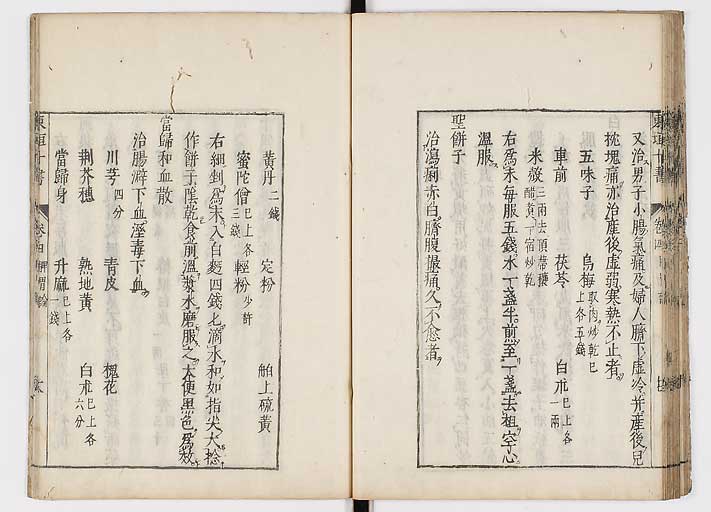 又治男子小腸氣痛及婦人臍下虛冷并產後兒
枕塊痛亦治產後虛弱寒熱不止者
五味子 烏梅取肉炒乾已上各五錢
車前 茯苓 白朮已上各一兩
米殼三兩去頂帶穰醋煑一宿炒乾
右爲末每服五錢水一盞半煎至一盞去柤空心
溫服
聖餅子
治瀉痢赤白臍腹撮痛久不愈者
黃丹二錢 定粉 舶上硫黃
蜜陀僧已上各三錢 輕粉少許
右細剉爲末入白麪四錢匕滴水和如指尖大捻
作餅子陰乾食前溫漿水磨服之大便黑色爲效
當歸和血散
治腸澼下血溼毒下血
川芎四分 青皮 槐花
荆芥穗 熟地黃 白朮已上各六分
當歸身 升麻已上各一錢
東垣十書 卷四